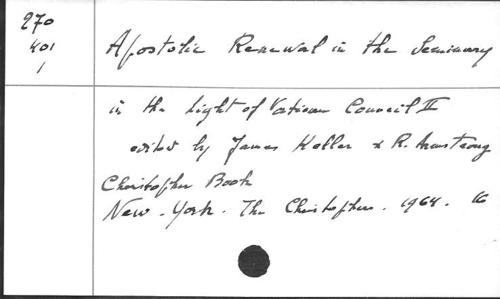 270
401
1
Apostolic Renewal in the Seminary
in the Light of Vatican Council II
edited by James Keller & R. Armstrong
Christopher Book
New - York. The Christophers. 1964. 16